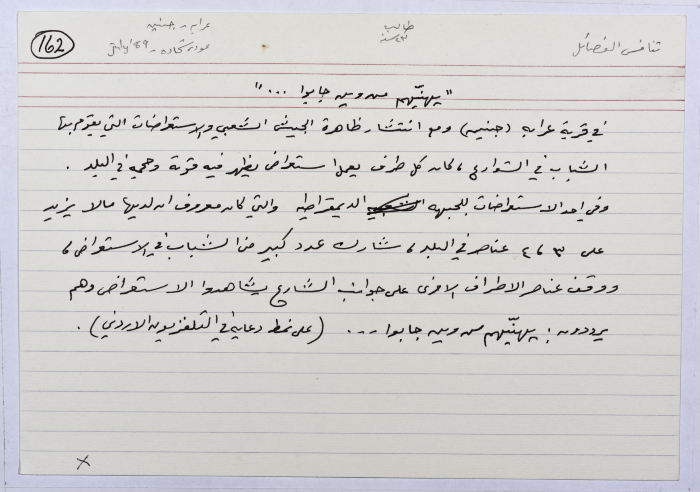 162
عرابه - جنين
عوده شحاده - July 89
طالب
٢٣ سنة
تنافس الفصائل
"يهنّيهم من وين جابوا ..."
في قرية عرابه (جنين) ومع انتشار ظاهرة الجيش الشعبي والاستعراضات التي يقوم بها
الشباب في الشوارع، كان كل طرف يعمل استعراض يظهر فيه قوته وحجمه في البلد .
وفي احد الاستعراضات للجبهه الديمقراطيه والتي كان معروف ان لديها ما لا يزيد
على ٣، ٤ عناصر في البلد، شارك عدد كبير من الشباب في الاستعراض،
ووقف عناصر الاطراف الاخرى على جوانب الشارع يشاهدوا الاستعراض وهم
يرددون : يهنّيهم من وين جابوا ... (على نمط دعايه في التلفزيون الاردني) .
x